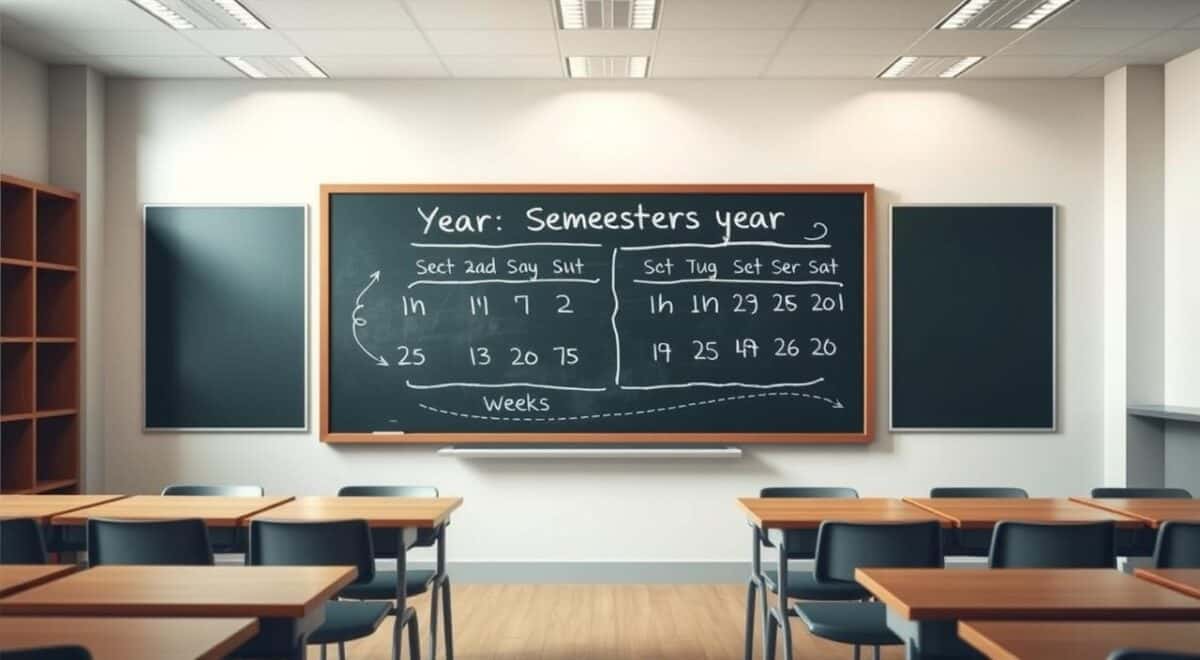 Year: Semeesters year
Sect 2ad Say Sut
Sct Tug Sct Ser Sat
1h 1'1 7 2
1h 1h 29 25 201
25 13 20 75
19 25 26 20
Weeks